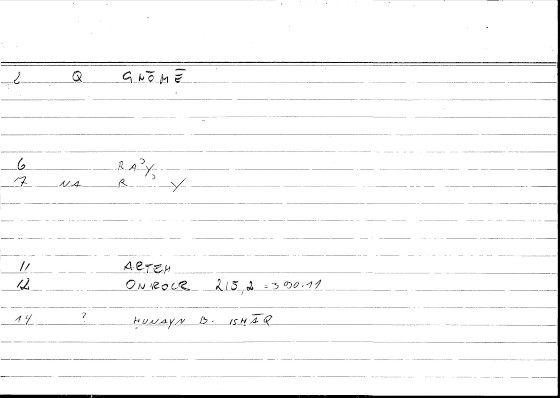 2 Q GNŌMĒ
6 RAʾY
7 NA R ʾ Y
11 ARTEM
12 ONIROCR 215,2 = 390.11
14 ? HUNAYN B. ISHĀQ